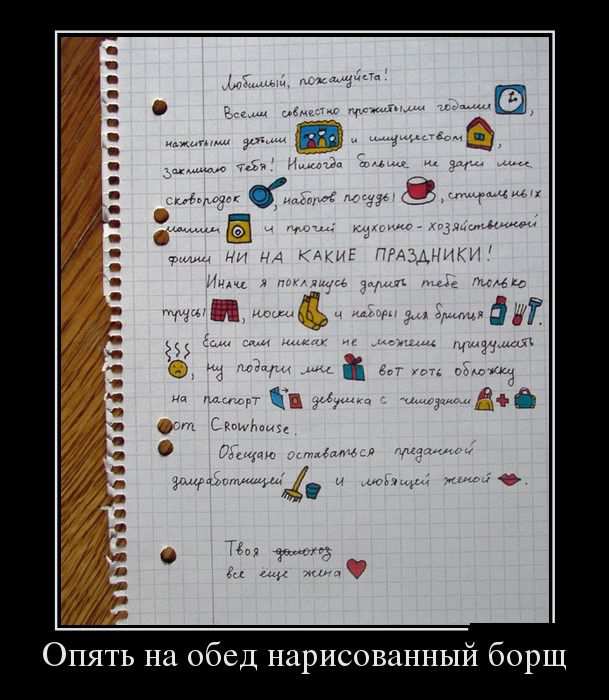 Любимый, пожалуйста!
Всеми совместно прожитыми годами,
нажитыми детьми и имуществом,
заклинаю тебя! Никогда больше не дари мне
сковородок, наборов посуды, стиральных
машин и прочей кухонно-хозяйственной
фигни НИ НА КАКИЕ ПРАЗДНИКИ!
Иначе я поклянусь дарить тебе только
трусы, носки и наборы для бритья.
Если сам никак не можешь придумать
, ну подари мне вот хоть обложку
на паспорт девушка с чемоданом
от Crowhouse.
Обещаю оставаться преданной
домработницей и любящей женой.
Твоя домохоз
все еще жена
Опять на обед нарисованный борщ